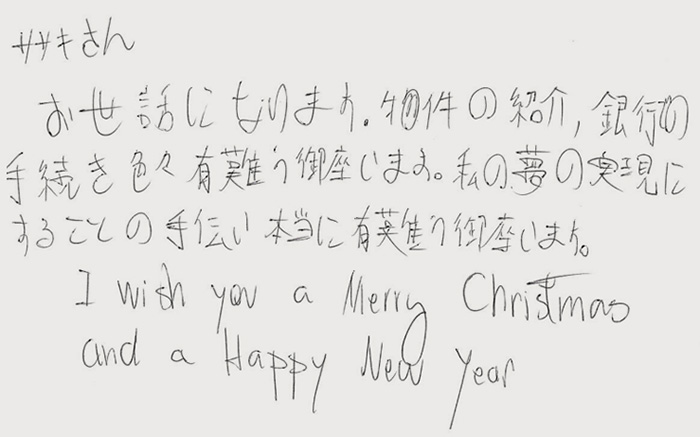 ササキさん
お世話になります。物件の紹介,銀行の
手続き色々有難う御座います。私の夢の実現に
することの手伝い本当に有難う御座います。
I wish you a Merry Christmas
and a Happy New Year